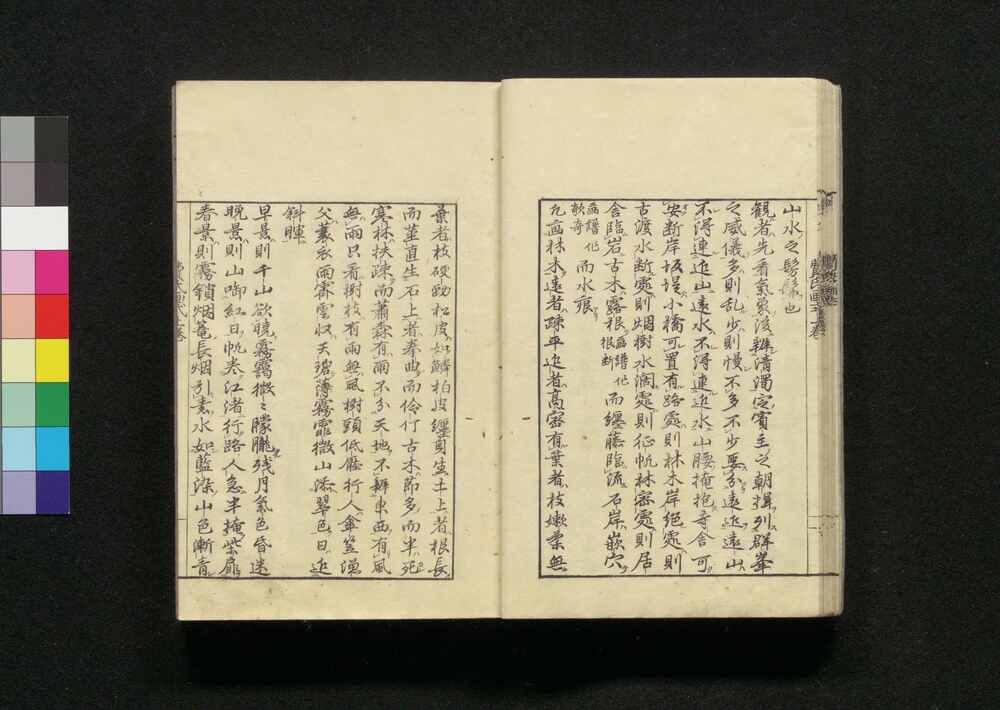 山水之髣髴也
観者先看氣象後辨清濁定賓主之朝揖列群峯
之威儀多則乱少則慢不多不少要分遠近遠山
不得連近山遠水不得連近水山腰掩抱寺舎可
安断岸坂堤小橋可置有路處則林木岸絶處則
古渡水断處則烟樹水濶處則征帆林密處則居
舎臨岩古木露根画譜作根断而纏藤臨流石岸嵌穴
画譜作欹奇而水痕
凡画林木遠者疎平近者高密有葉者枝嫩柔無
葉者枝硬勁松皮如鱗柏皮纏身生土上者根長
而莖直生石上者拳曲而伶仃古木節多而半死
寒林扶疎而蕭森有雨不分天地不辨東西有風
無雨只看樹枝有雨無風樹頭低壓行人傘笠漁
父蓑衣雨霽雲収天碧薄霧霏微山添翠色日近
斜暉
早景則千山欲暁霧靄微〻朦朧残月氣色昏迷
晩景則山啣紅日帆巻江渚行路人急半掩柴扉
春景則霧鎖烟篭長烟引素水如藍染山色漸青